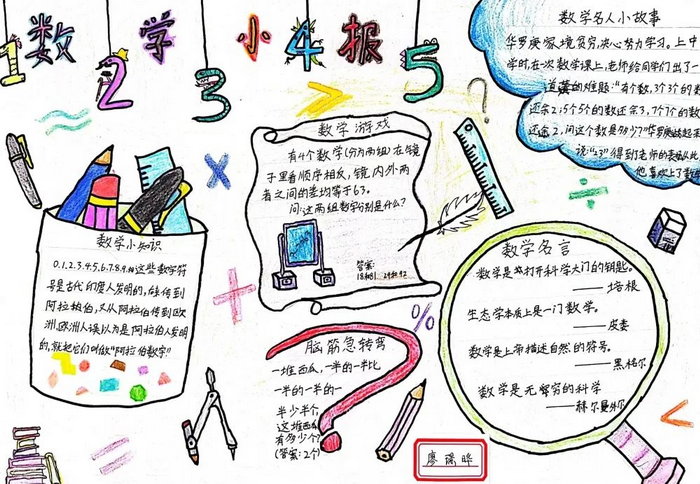 1数2学3小4报5
数学名人小故事
华罗庚家境贫穷,决心努力学习。上中
学时,在一次数学课上,老师给同学们出了一
道著名的难题:"有个数,3个3个的数
还余2,5个5个的数还余3,7个7的数
还余2,问这个数是多少?"华罗庚站起来
说:"23"得到了老师的表扬从此,
他喜欢上了数
数学游戏
有4个数学(分为两组)在镜
子里看顺序相反,镜内外两
者之间的差均等于63。
问:这两组数学分别是什么?
答案:
18和81 29和92
数学小知识
0.1.2.3.4.5.6.7.8.9.这些数学符
号是古代印度人发明的,后传到
阿拉伯,又从阿拉伯传到欧
洲,欧洲人误以为是阿拉伯人发明
的,就把它们叫做"阿拉伯数学"
数学名言
数学是打开科学大门的钥匙。
——培根
生态学本质上是一门数学。
——皮娄
数学是上帝描述自然的符号。
——黑格尔
数学是无穷的科学
——赫尔曼外尔
脑筋急转弯
一堆西瓜,一半的一半比
一半的一半的一
半少半个
这堆西瓜
有多少个?
(答案:2个)
廖